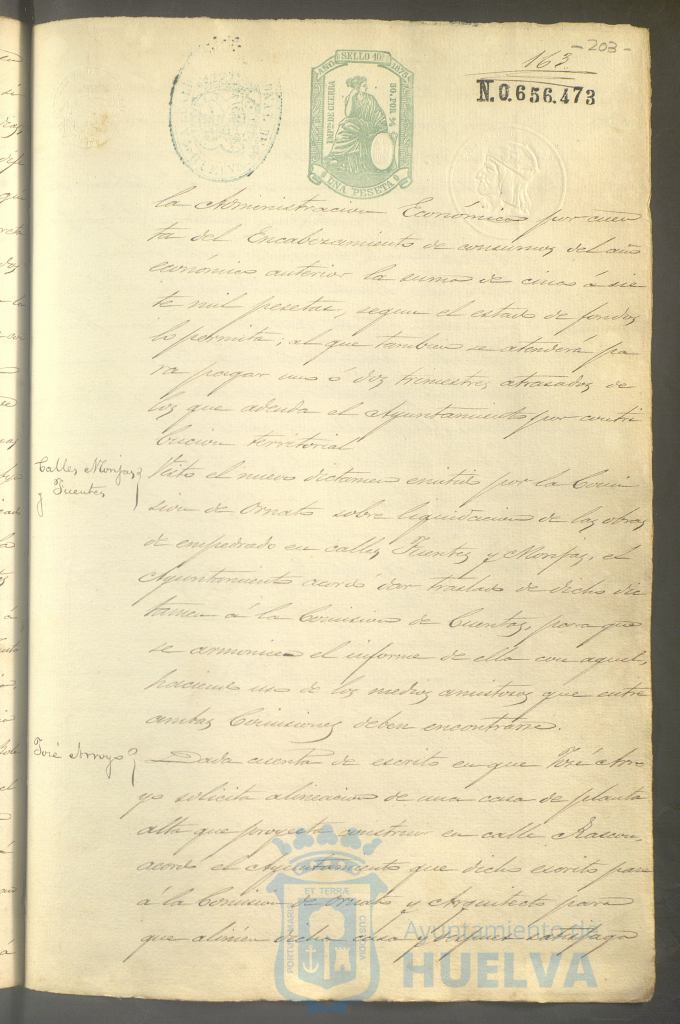 - 203 -
163
N.0.656.473
AÑO SELLO 10º 1878
IMPTO DE GUERRA
50 POR %
UNA PESETA
la Administracion Económica por cuen
ta del Encabezamiento de consumos del año
económico anterior la suma de cinco á sie
te mil pesetas, segun el estado de fondos
lo permita; al que tambien se atenderá pa
ra pagar uno ó dos trimestres atrasados de
los que adeuda el Ayuntamiento por contri
bucion territorial
Calles Monjas
y Fuentes
Visto el nuevo dictamen emitido por la Comi
sion de Ornato sobre liquidacion de las obras
de empedrado en calles Fuentes y Monjas, el
Ayuntamiento acordó dar traslado de dicho dic
tamen á la Comision de Cuentas, para que
se armonice el informe de ella con aquel,
haciendo uso de los medios amistosos que entre
ambas Comisiones deben encontrarse.
José Arroyo
Dada cuenta de escrito en que José Arro
yo solicita alineacion de una casa de planta
alta que proyecta construir en calle Rascon,
acordó el Ayuntamiento que dicho escrito pase
á la Comision de Ornato y Arquitecto para
que alinien dicha casa y
PORTUS MARIS ET TERRÆ CUSTODIA
Ayuntamiento de
HUELVA